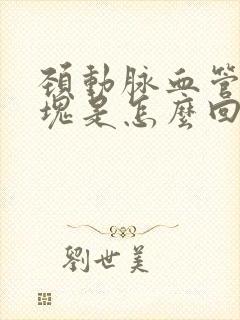 頚動脉血管
塊是怎麼回
劉世美